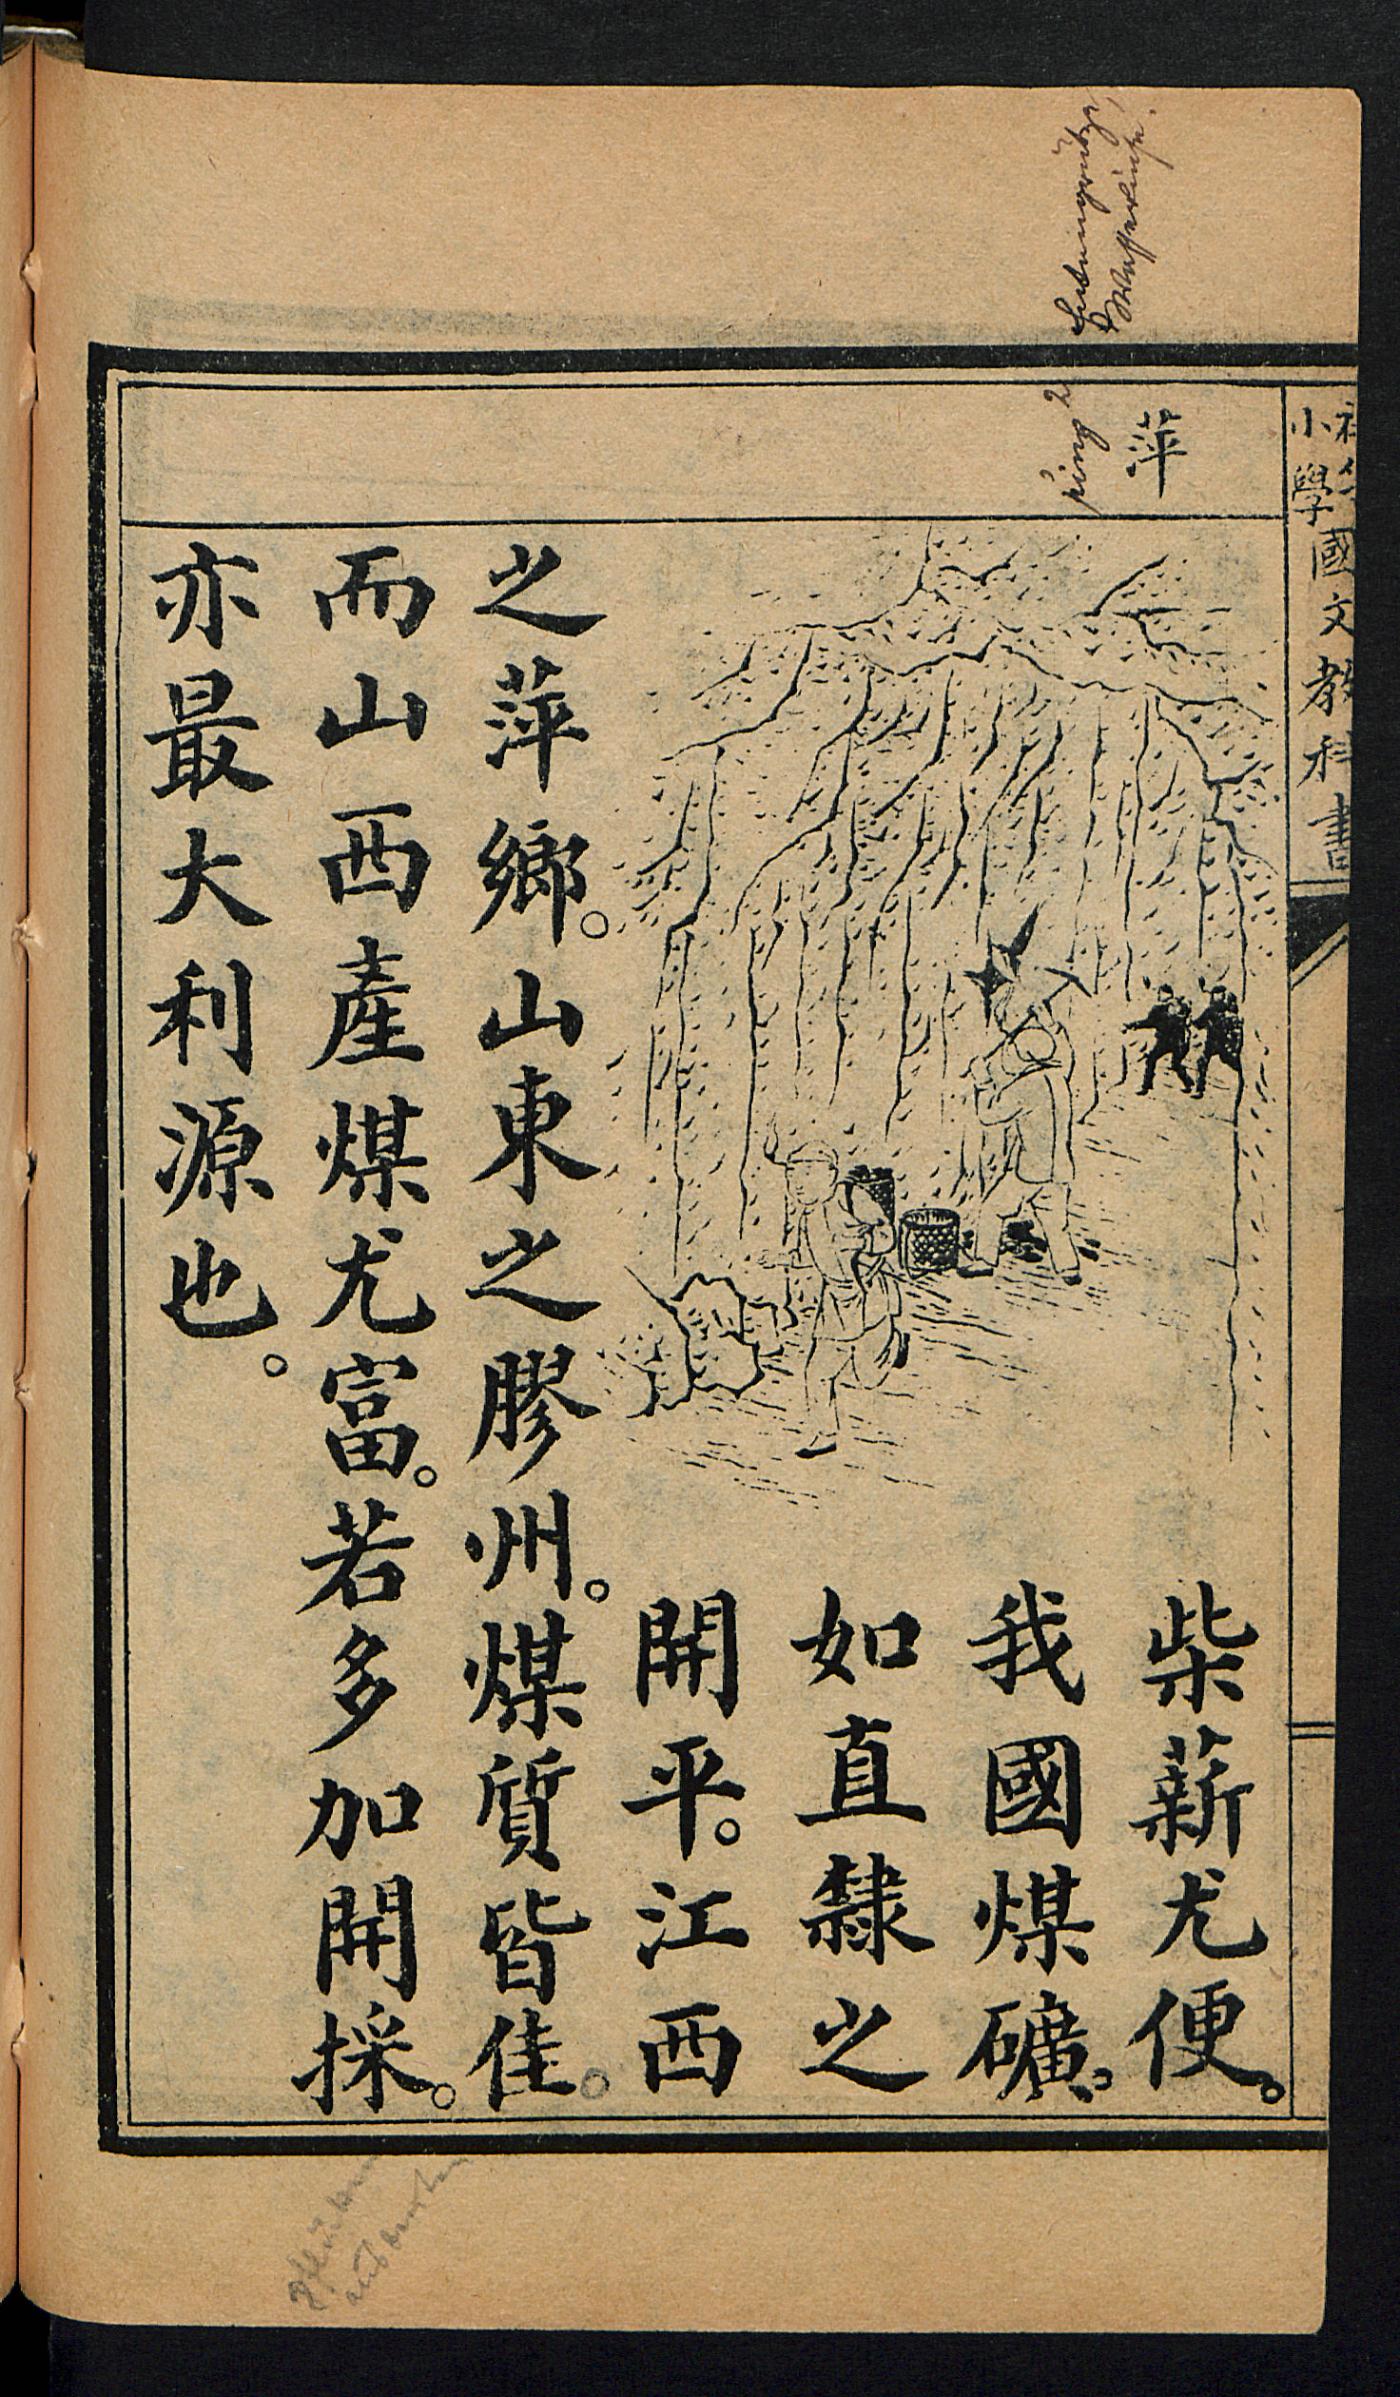 國文教科書
小學
萍
p'ing²
柴薪尤便。
我國煤礦。
如直隸之
開平。江西
之萍鄉。山東之膠州。煤質皆佳。
而山西產煤尤富。若多加開採。
亦最大利源也。